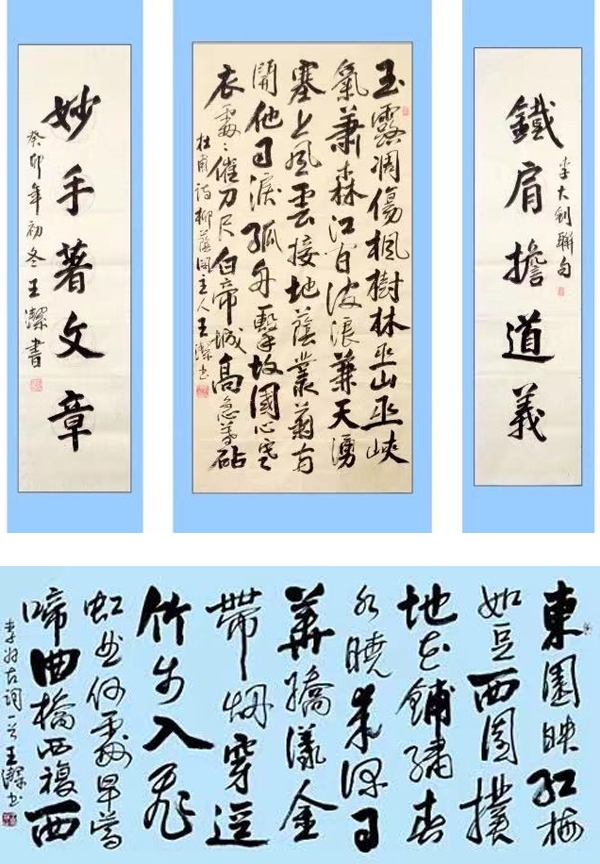 鐵肩擔道義
李大釗聯句
玉露凋傷楓樹林巫山巫峽
氣蕭森江間波浪兼天湧
塞上風雲接地蔭叢菊兩
開他日淚孤舟擊故國心寒
衣處〻催刀尺白帝城高急暮砧
杜甫詩柳蔭閣主人王潔書
妙手著文章
癸卯年初冬王潔書
東園映紅梅
如豆西園撲
地花鋪繡春
水曉來深日
華嬌漾金
帶烟穿逕
竹步入飛
虹何處早鶯
啼曲橋西複西
李好古詞一首王潔書